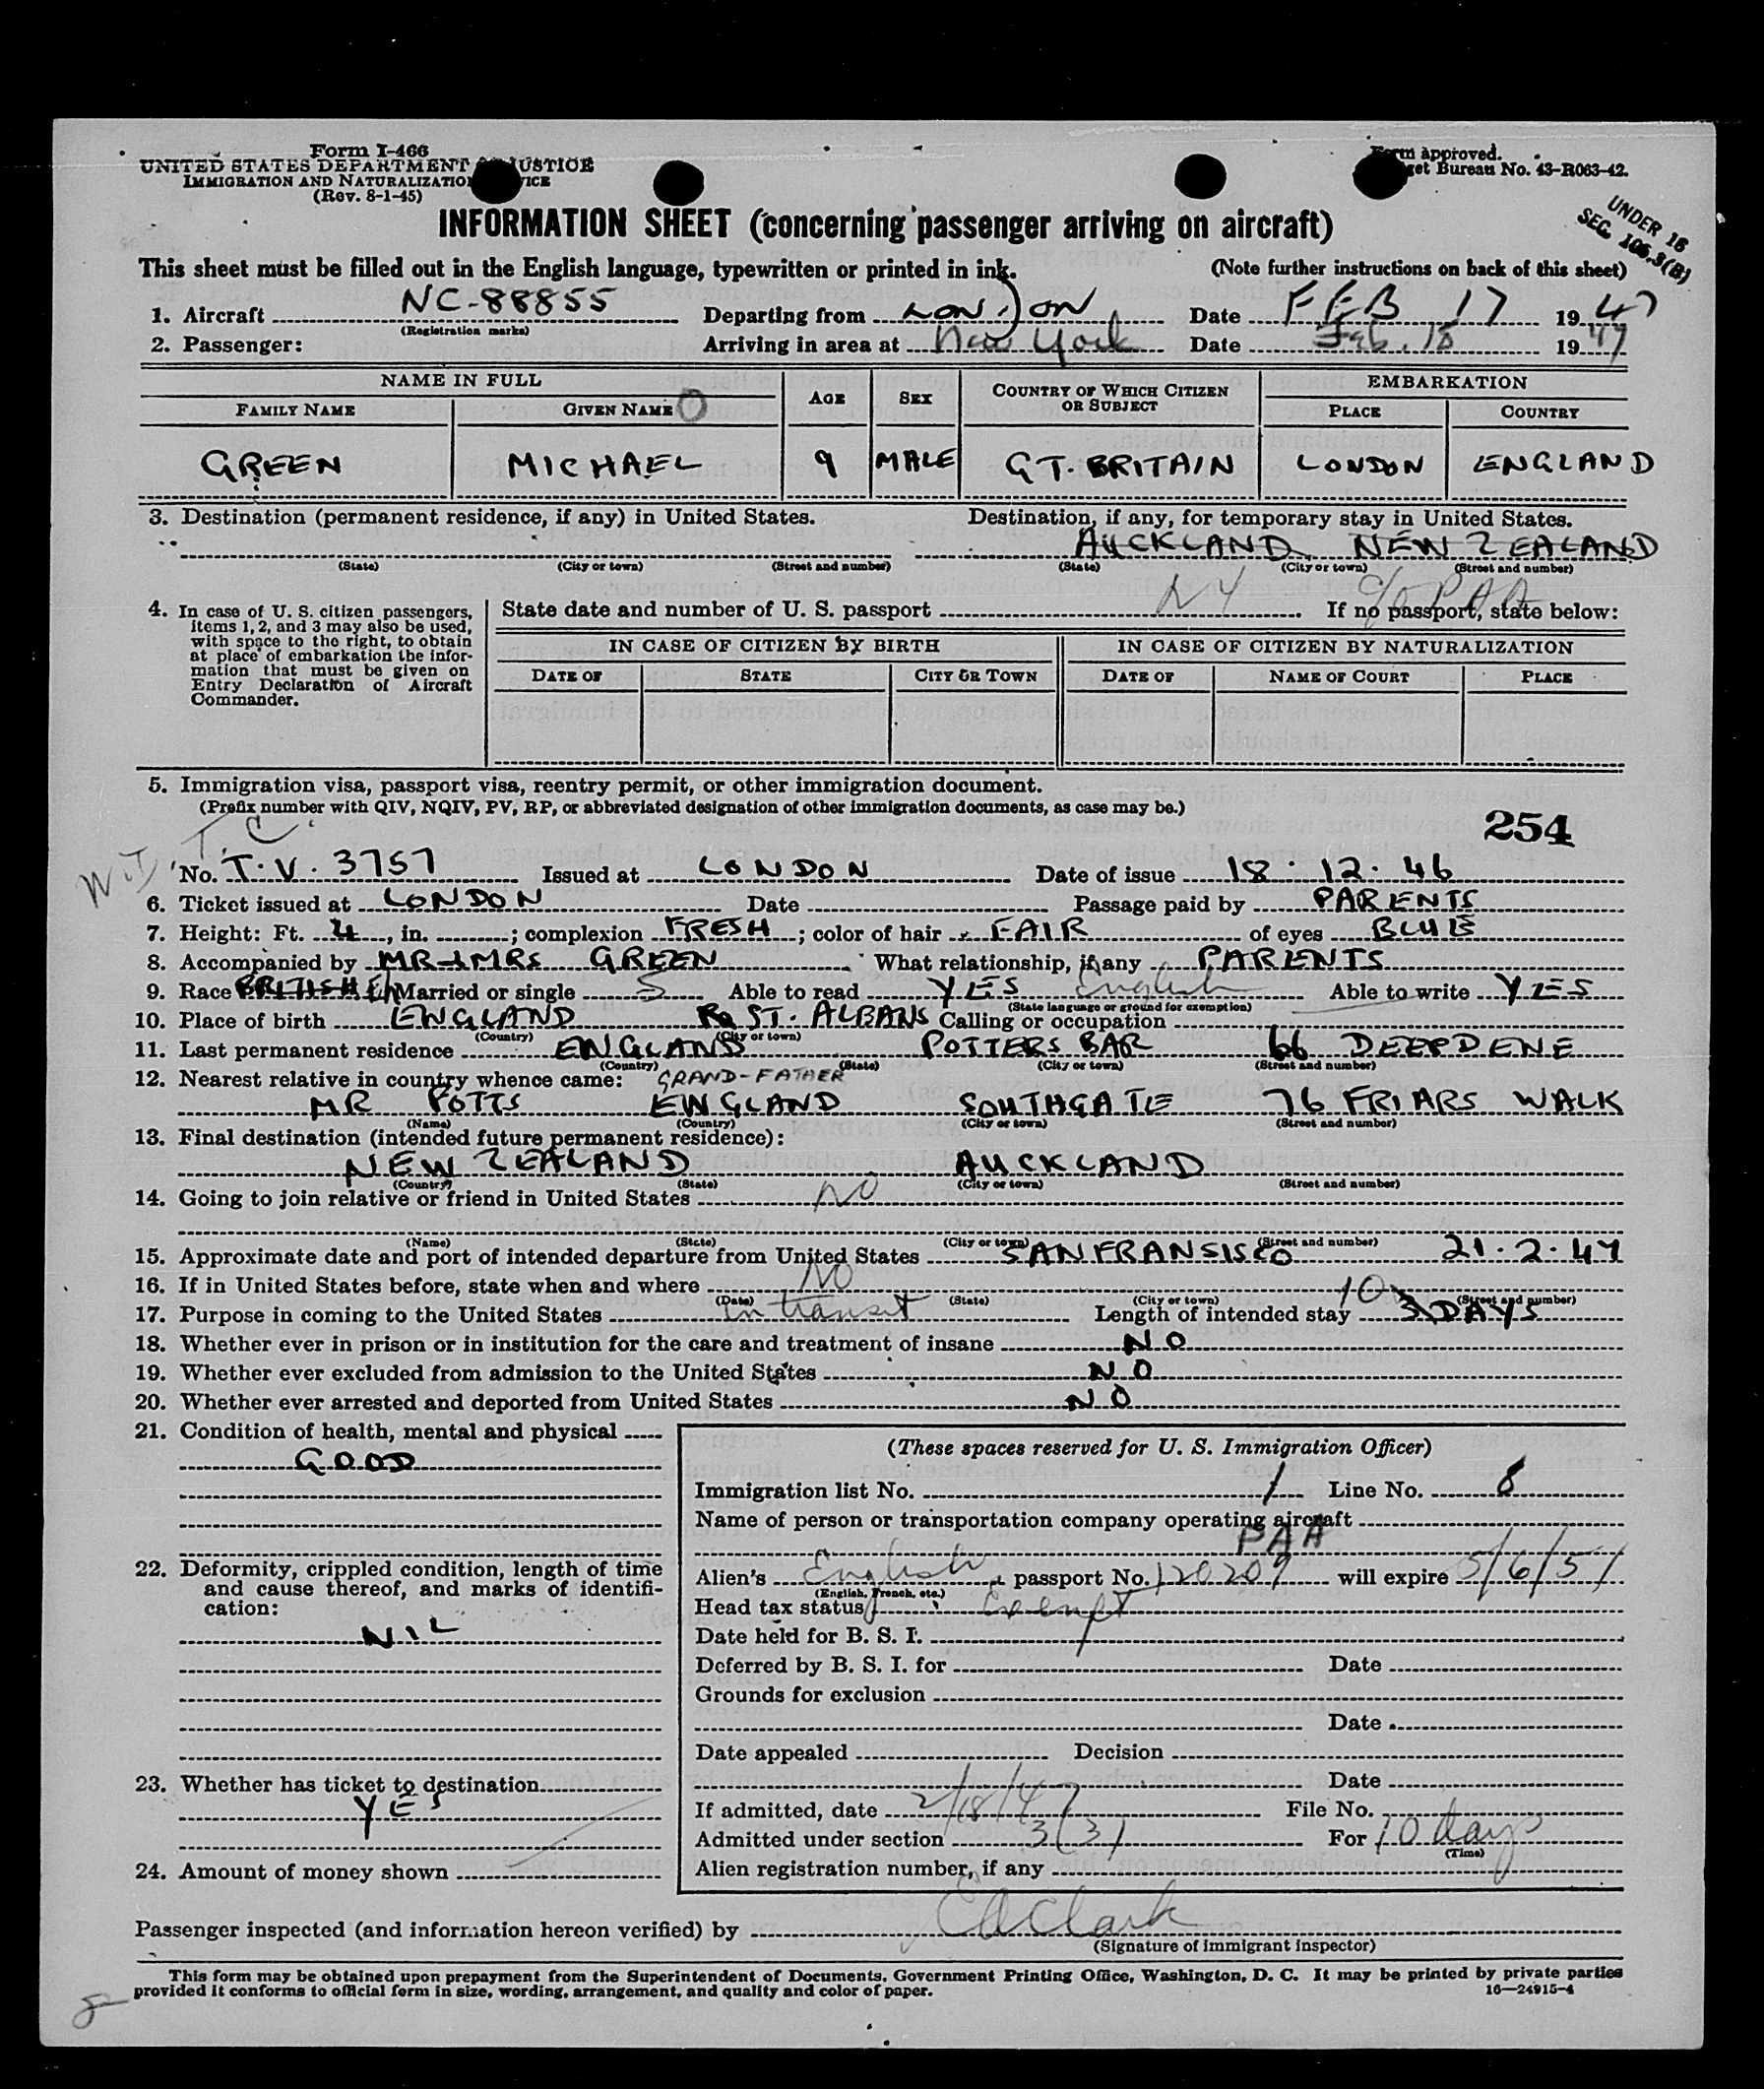 Form I-466
UNITED STATES DEPARTMENT OF JUSTICE
IMMIGRATION AND NATURALIZATION SERVICE
(Rev. 8-1-45)
Form approved.
Budget Bureau No. 43-R063-42.
UNDER 16
SEC. 106.3(B)
INFORMATION SHEET (concerning passenger arriving on aircraft)
This sheet must be filled out in the English language, typewritten or printed in ink. (Note further instructions on back of this sheet)
1. Aircraft NC-88855 Departing from LONDON Date FEB 17 1947
(Registration marks)
2. Passenger: Arriving in area at New York Date Feb. 18 1947
NAME IN FULL AGE SEX COUNTRY OF WHICH CITIZEN OR SUBJECT EMBARKATION
FAMILY NAME GIVEN NAME PLACE COUNTRY
GREEN MICHAEL 9 MALE GT. BRITAIN LONDON ENGLAND
3. Destination (permanent residence, if any) in United States. Destination, if any, for temporary stay in United States.
AUCKLAND NEW ZEALAND
(State) (City or town) (Street and number) (State) (City or town) (Street and number)
NY c/o PAA
4. In case of U. S. citizen passengers, items 1, 2, and 3 may also be used, with space to the right, to obtain at place of embarkation the information that must be given on Entry Declaration of Aircraft Commander.
State date and number of U. S. passport If no passport, state below:
IN CASE OF CITIZEN BY BIRTH IN CASE OF CITIZEN BY NATURALIZATION
DATE OF STATE CITY OR TOWN DATE OF NAME OF COURT PLACE
5. Immigration visa, passport visa, reentry permit, or other immigration document.
(Prefix number with QIV, NQIV, PV, RP, or abbreviated designation of other immigration documents, as case may be.)
254
T.C.
No. T.V. 3757 Issued at LONDON Date of issue 18.12.46
6. Ticket issued at LONDON Date Passage paid by PARENTS
7. Height: Ft. 4, in. ; complexion FRESH; color of hair FAIR of eyes BLUE
8. Accompanied by MR & MRS GREEN What relationship, if any PARENTS
9. Race BRITISH Married or single S Able to read YES English Able to write YES
(State language or ground for exemption)
10. Place of birth ENGLAND ST. ALBANS Calling or occupation
(Country) (City or town)
11. Last permanent residence ENGLAND POTTERS BAR 66 DEEPDENE
(Country) (State) (City or town) (Street and number)
12. Nearest relative in country whence came: GRAND-FATHER
MR POTTS ENGLAND SOUTHGATE 76 FRIARS WALK
(Name) (Country) (City or town) (Street and number)
13. Final destination (intended future permanent residence):
NEW ZEALAND AUCKLAND
(Country) (State) (City or town) (Street and number)
14. Going to join relative or friend in United States NO
(Name) (State) (City or town) (Street and number)
15. Approximate date and port of intended departure from United States SAN FRANSISCO 21.2.47
16. If in United States before, state when and where NO
(Date) (State) (City or town) (Street and number)
17. Purpose in coming to the United States In transit Length of intended stay 10 3 DAYS
18. Whether ever in prison or in institution for the care and treatment of insane NO
19. Whether ever excluded from admission to the United States NO
20. Whether ever arrested and deported from United States NO
21. Condition of health, mental and physical
GOOD
22. Deformity, crippled condition, length of time and cause thereof, and marks of identification:
NIL
23. Whether has ticket to destination
YES
24. Amount of money shown
(These spaces reserved for U. S. Immigration Officer)
Immigration list No. 1 Line No. 8
Name of person or transportation company operating aircraft
PAA
Alien's English, passport No. 120209 will expire 5/6/51
(English, French, etc.)
Head tax status Exempt
Date held for B. S. I.
Deferred by B. S. I. for Date
Grounds for exclusion
Date
Date appealed Decision
Date
If admitted, date 2/18/47 File No.
Admitted under section 3(3) For 10 days
(Time)
Alien registration number, if any
Passenger inspected (and information hereon verified) by EAClark
(Signature of immigrant inspector)
This form may be obtained upon prepayment from the Superintendent of Documents, Government Printing Office, Washington, D. C. It may be printed by private parties
provided it conforms to official form in size, wording, arrangement, and quality and color of paper. 16—24915-4